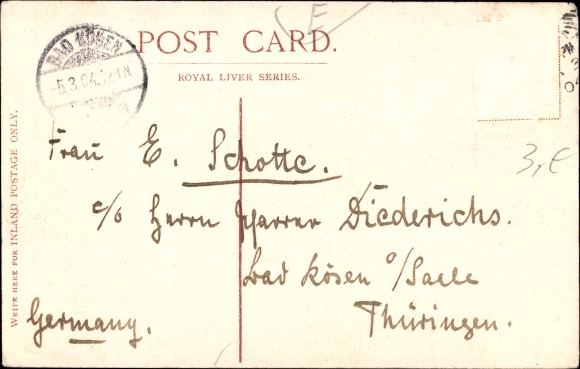 E
POST CARD.
ROYAL LIVER SERIES.
BAD KÖSEN
5.3.04.
WRITE HERE FOR INLAND POSTAGE ONLY.
3,€
Frau E. Schotte.
c/o Herrn Pfarrer Diederichs.
Bad Kösen o/Saale
Thüringen.
Germany.